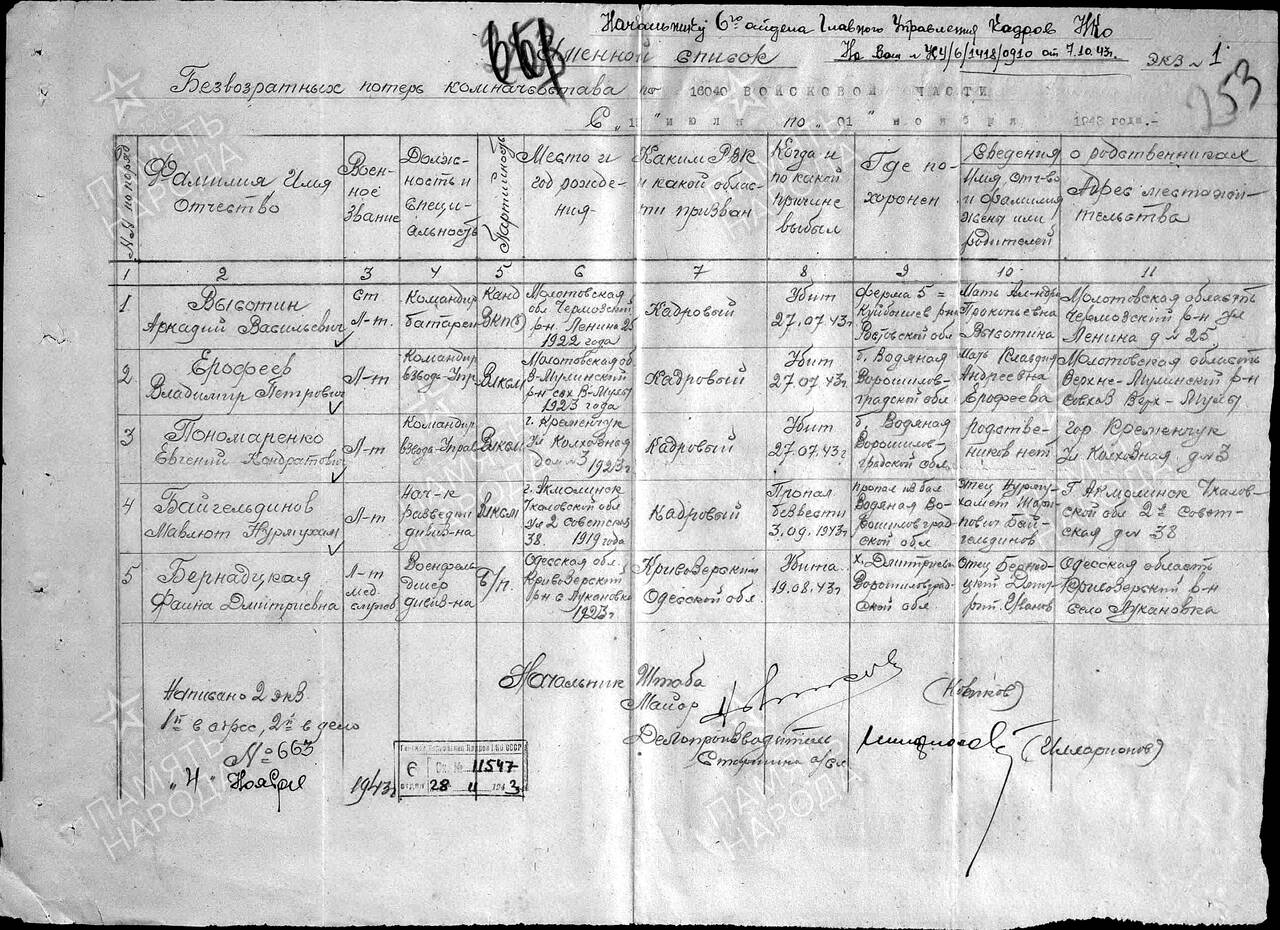 Начальнику 6го отдела Главного Управления Кадров НКО
На Ваш № УН4/6/1418/0910 от 7.10.43г.
Экз № 1
Именной список
253
Безвозратных потерь комначсостава по 16040 ВОЙСКОВОЙ ЧАСТИ
С " " июля по " 01 " ноября 1943 года.-
№№ по поряд
Фамилия Имя Отчество
Воен-ное звание
Долж-ность и специ-альность
Партийность
Место и год рожде-ния-
Каким РВК и какой облас-ти призван
Когда и по какой причине выбыл
Где по-хоронен
Сведения о родственниках
Имя отч-во и фамилия жены или родителей
Адрес местажи-тельства
1 2 3 4 5 6 7 8 9 10 11
1 Высотин Аркадий Васильевич
Ст л-т.
Командир батареи
Канд ВКП(б)
Молотовская обл Чермозский р-н Ленина 25 1922 года
Кадровый
Убит 27.07.43г
Ферма 5 = Куйбышев р-на Рос-овской обл
Мать Ал-ндра Прокопьевна Высотина
Молотовская область Чермозский р-н ул Ленина д № 25
2 Ерофеев Владимир Петрович
Л-т
Командир взвода-Упр
Влксм
Молотовская об. В-Мулинский р-н сох В-Муллы 1923 года
Кадровый
Убит 27.07.43г
б. Водяная Ворошилов-градской обл
Мать Клавдия Андреевна Ерофеева
Молотовская область Верхне-Мулинский р-н Совхоз Верх-Муллы
3 Пономаренко Евгений Кондратович
Л-т
Командир взвода-Управ
Влксм
г. Кременчук ул Колхозная дом № 3 1923г
Кадровый
Убит 27.07.43г
б. Водяная Ворошилов-градской обл.
Родстве-ников нет
гор Кременчук ул Колхозная д № 3
4 Байгельдинов Мавлют Нурмухам
Л-т
Нач-к разведки дивиз-на
Влксм
г. Акмолинск Чкаловской обл ул 2 Советская 38. 1919 года
Кадровый
Пропал безвести 3.09.1943г
пропал из бал Водяная Во-рошиловград-ской обл
Отец Нурму-хамет Шари-пович Бай-гелдинов
Г. Акмолинск Чкалов-ской обл 2я Совет-ская д № 38
5 Бернадцкая Фаина Дмитриевна
Л-т мед служб
Военфель-дшер дивиз-на
Б/п.
Одесская обл. КривоЗерский р-н с Лукановка 1923г
КривоЗерским Одесской обл.
Убита 19.08.43г
х. Дмитриевка Ворошиловград-ской обл
Отец Бернад-цкий Дмит-рий Иванов
Одесская область КривоЗерский р-н село Лукановка
Начальник Штаба
Майор
(Новиков)
Делопроизводитель
Старшина а/сл
(Илларионов)
Написано 2 экз
1й в адрес, 2й в дело
№ 663
" 4 " Ноября 1943г
6 отдел
Вх. № 11547
28 11 1943
ПАМЯТЬ НАРОДА
ПАМЯТЬ НАРОДА
ПАМЯТЬ НАРОДА
ПАМЯТЬ НАРОДА
ПАМЯТЬ НАРОДА